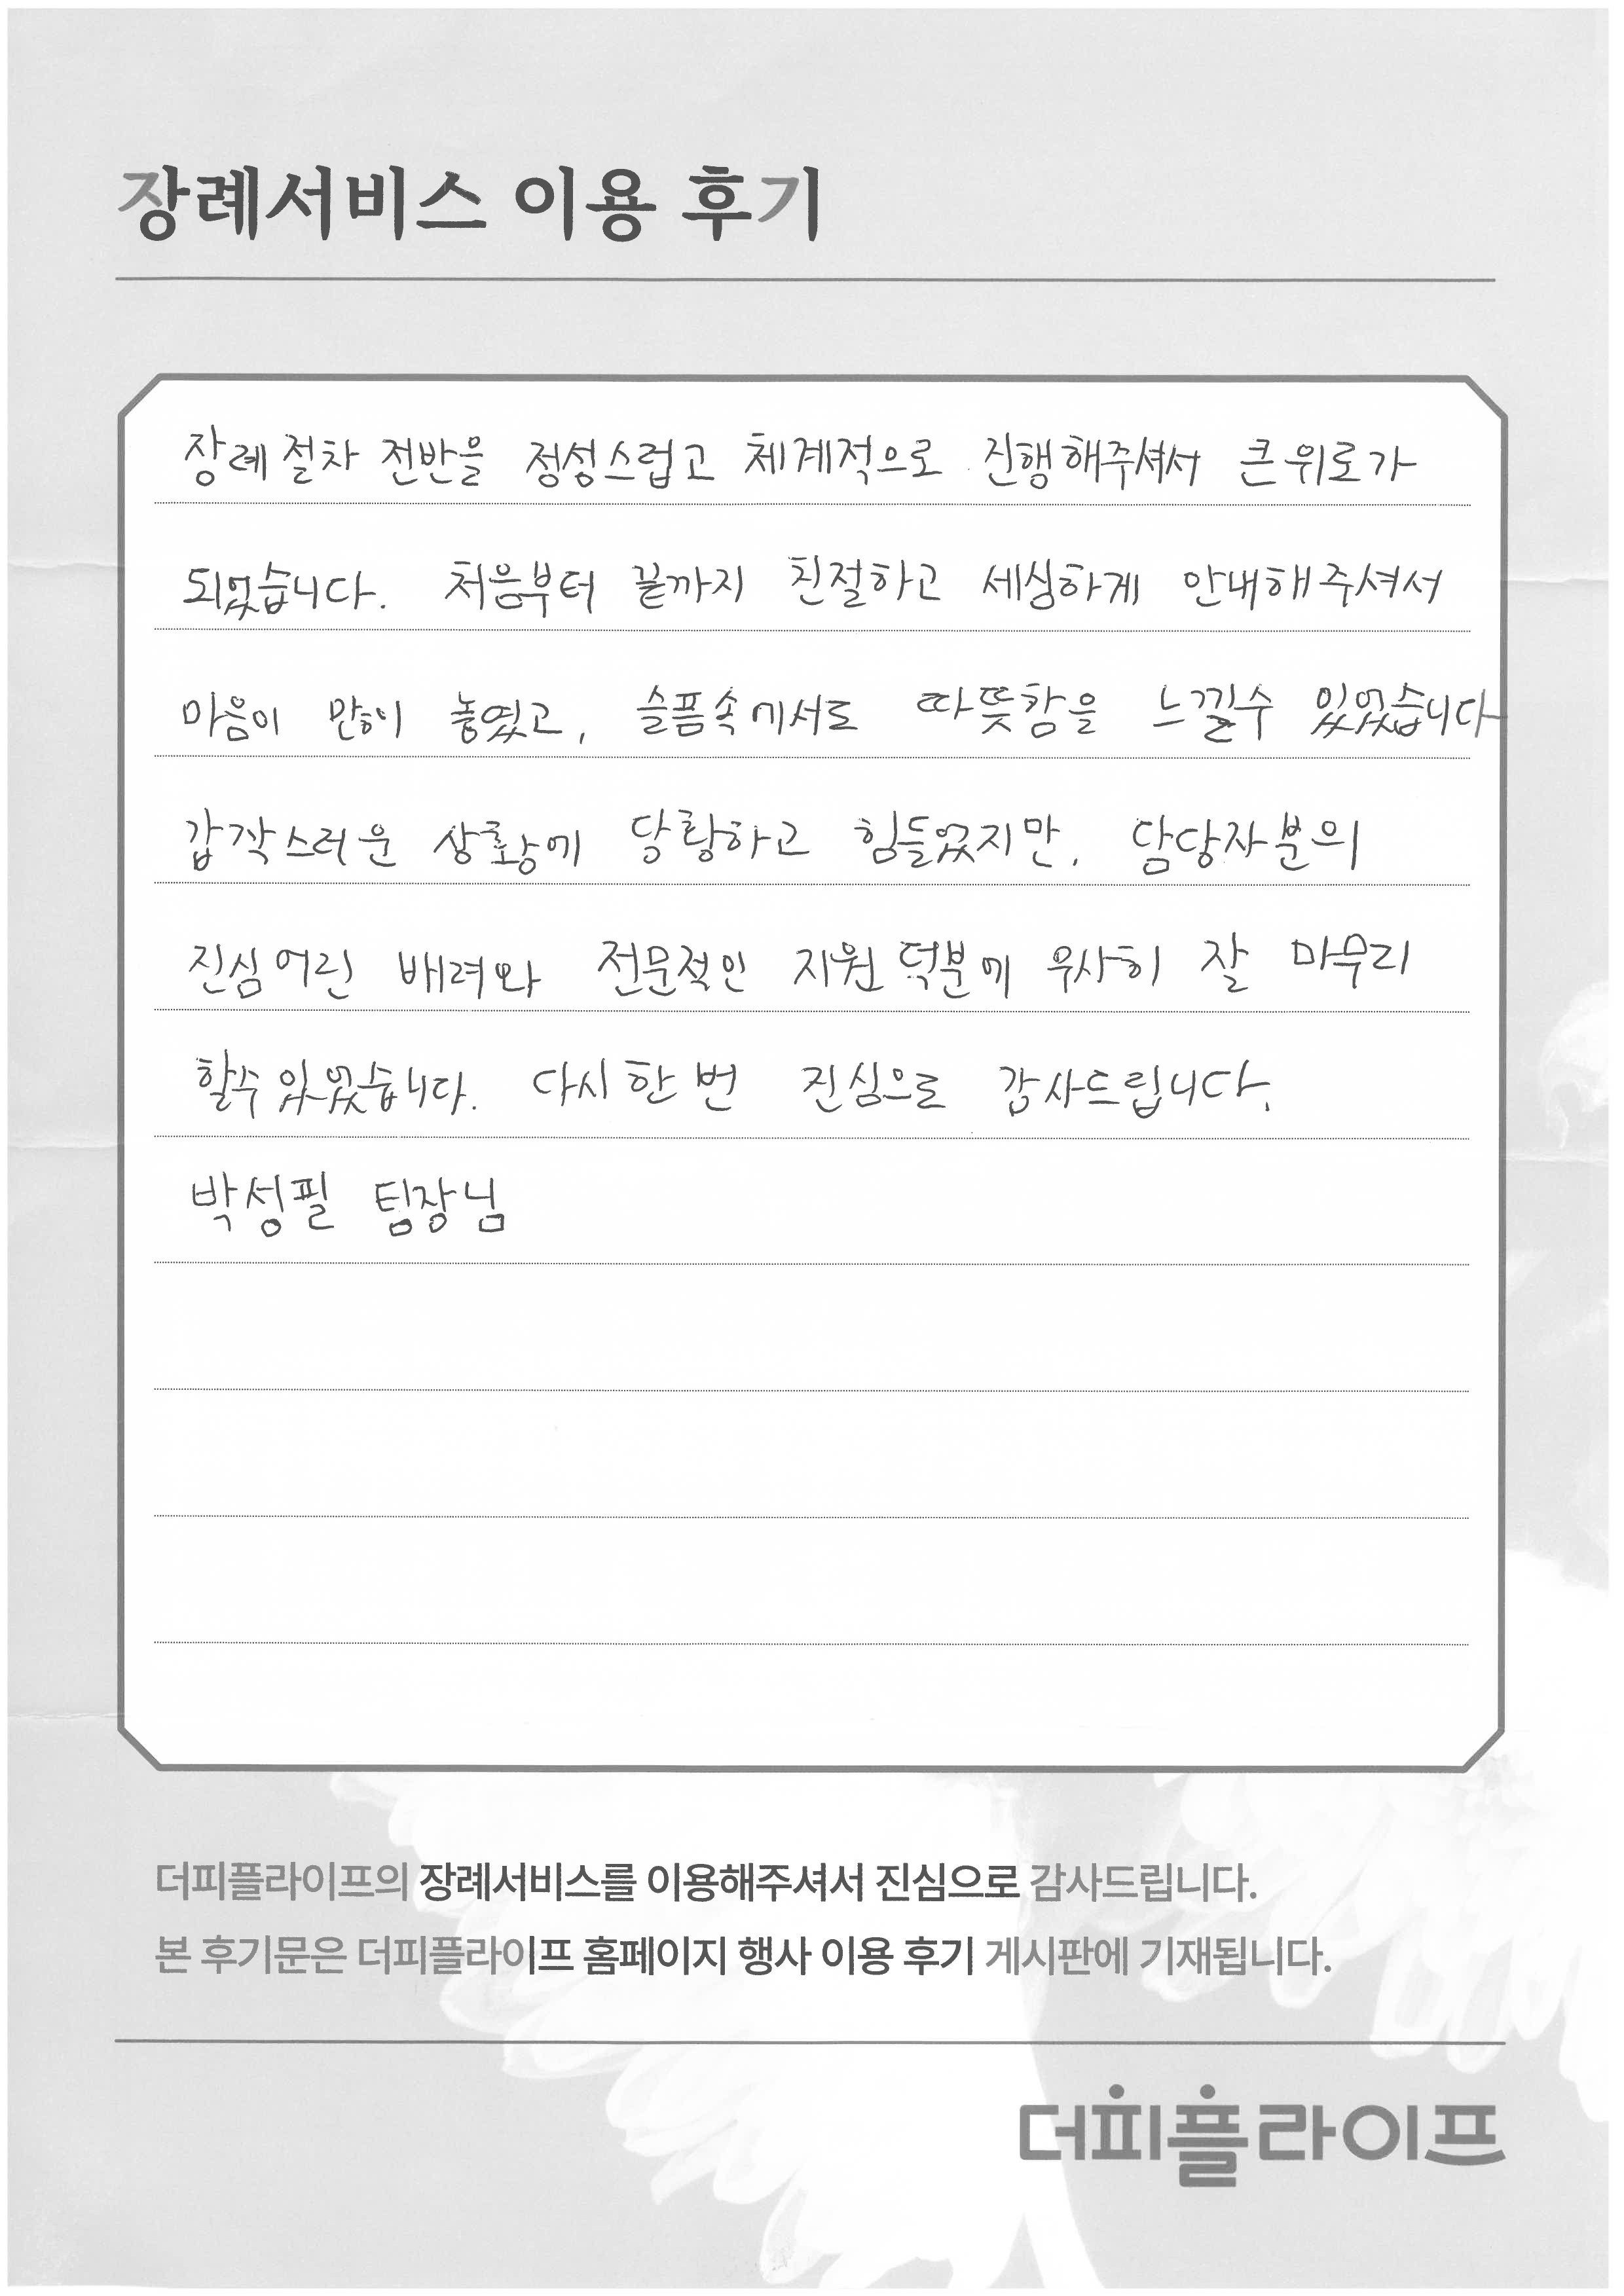 장례서비스 이용 후기
장례 절차 전반을 정성스럽고 체계적으로 진행해주셔서 큰 위로가
되었습니다. 처음부터 끝까지 친절하고 세심하게 안내해주셔서
마음이 많이 놓였고, 슬픔속에서도 따뜻함을 느낄수 있었습니다
갑작스러운 상황에 당황하고 힘들었지만, 담당자분의
진심어린 배려와 전문적인 지원 덕분에 무사히 잘 마무리
할수 있었습니다. 다시 한 번 진심으로 감사드립니다.
박성필 팀장님
더피플라이프의 장례서비스를 이용해주셔서 진심으로 감사드립니다.
본 후기문은 더피플라이프 홈페이지 행사 이용 후기 게시판에 기재됩니다.
더피플라이프